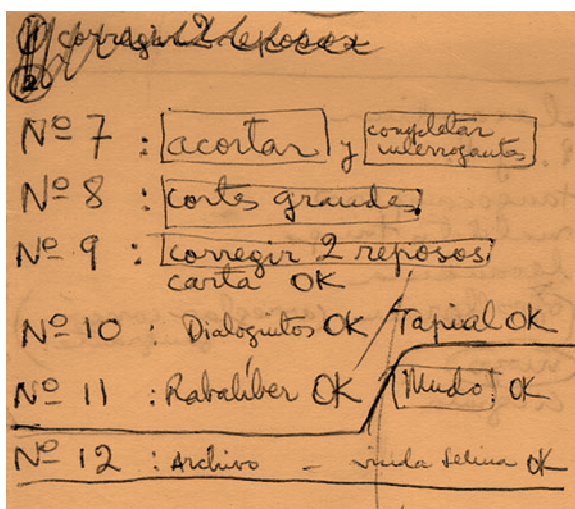 ① corregir 2 reposos
②
Nº 7 : acortar y completar interrogantes
Nº 8 : cortes grandes
Nº 9 : corregir 2 reposos
carta OK
Nº 10 : Dialoguitos OK / Tapial OK
Nº 11 : Rabalíber OK Mudo! OK
Nº 12 : Archivo - viuda Selina OK